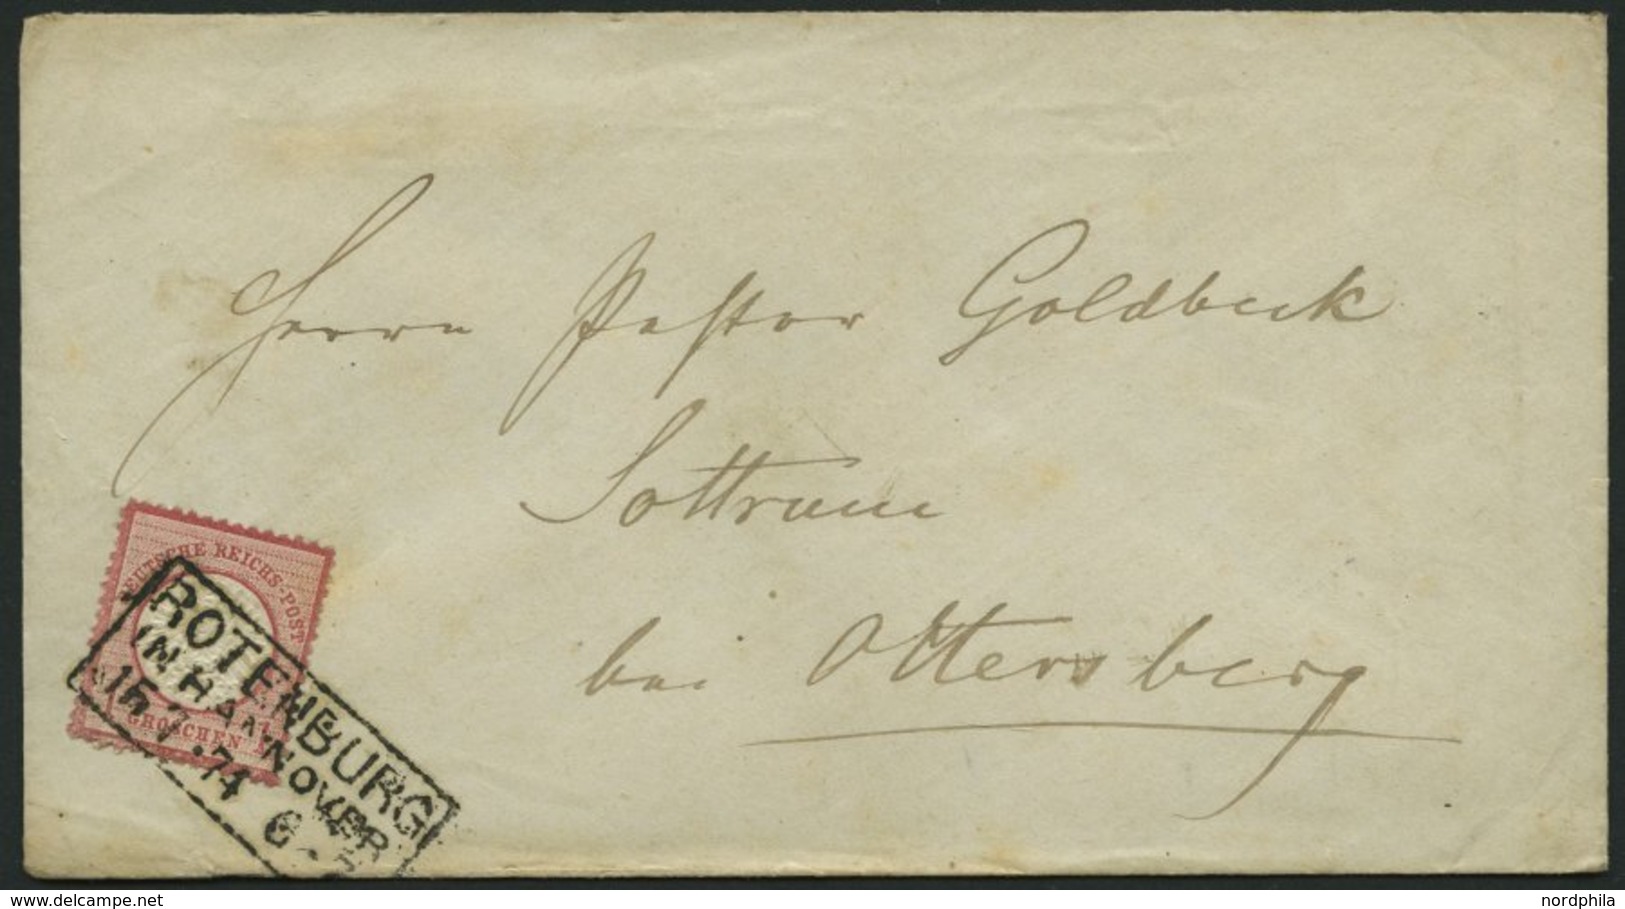 Herrn Pastor Goldbeck
Sottrum
bei Ottersberg
DEUTSCHE REICHS-POST
GROSCHEN
ROTENBURG
IN HANNOVER
15 7 .74
delcampe.net
nordphila